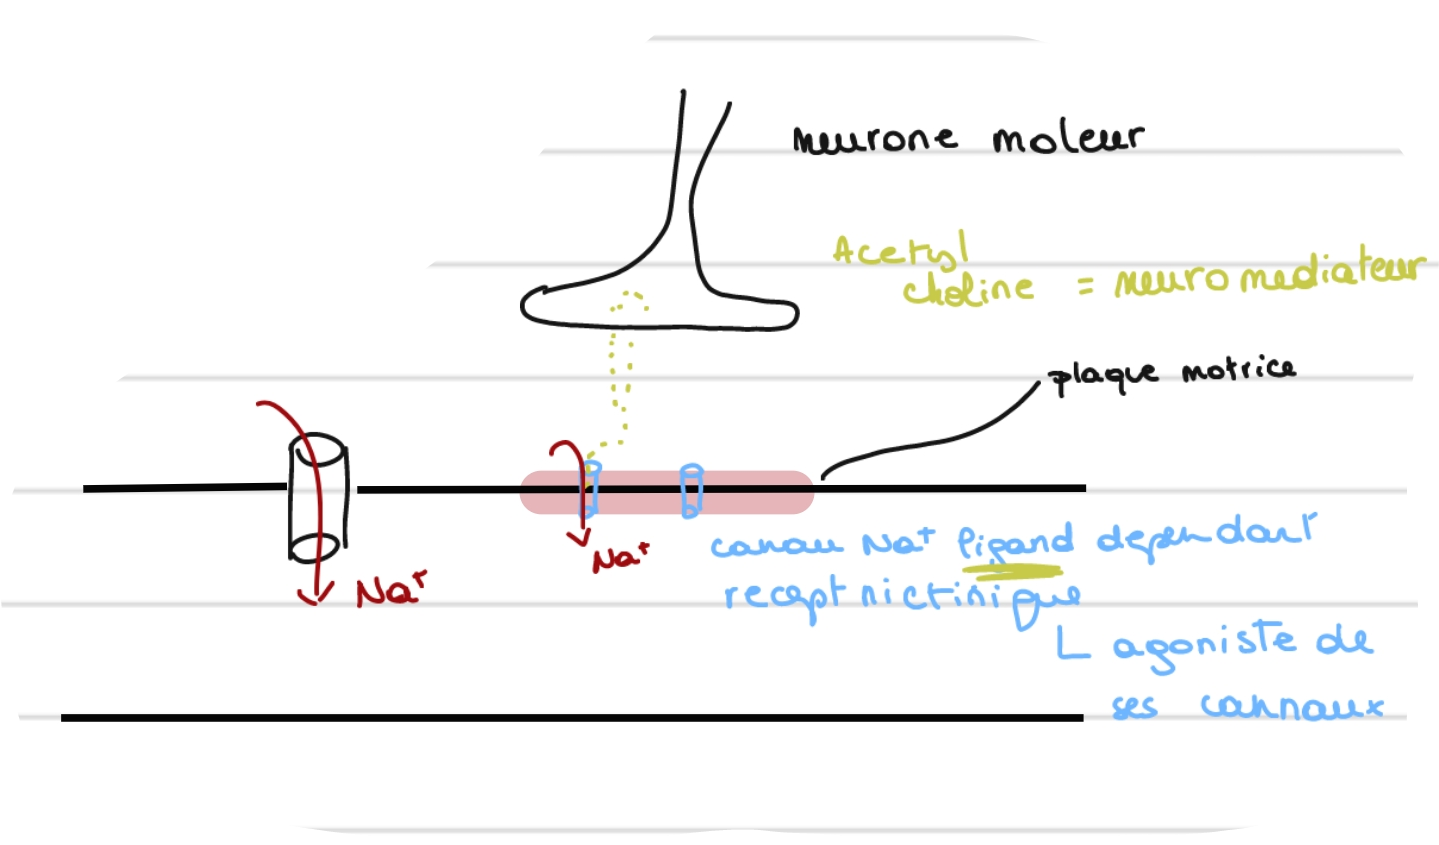 neurone moteur
Acetyl
choline = neuromediateur
plaque motrice
Na+
Na+
canau Na+ ligand dependant
recept nictinique
L agoniste de
ses cannaux